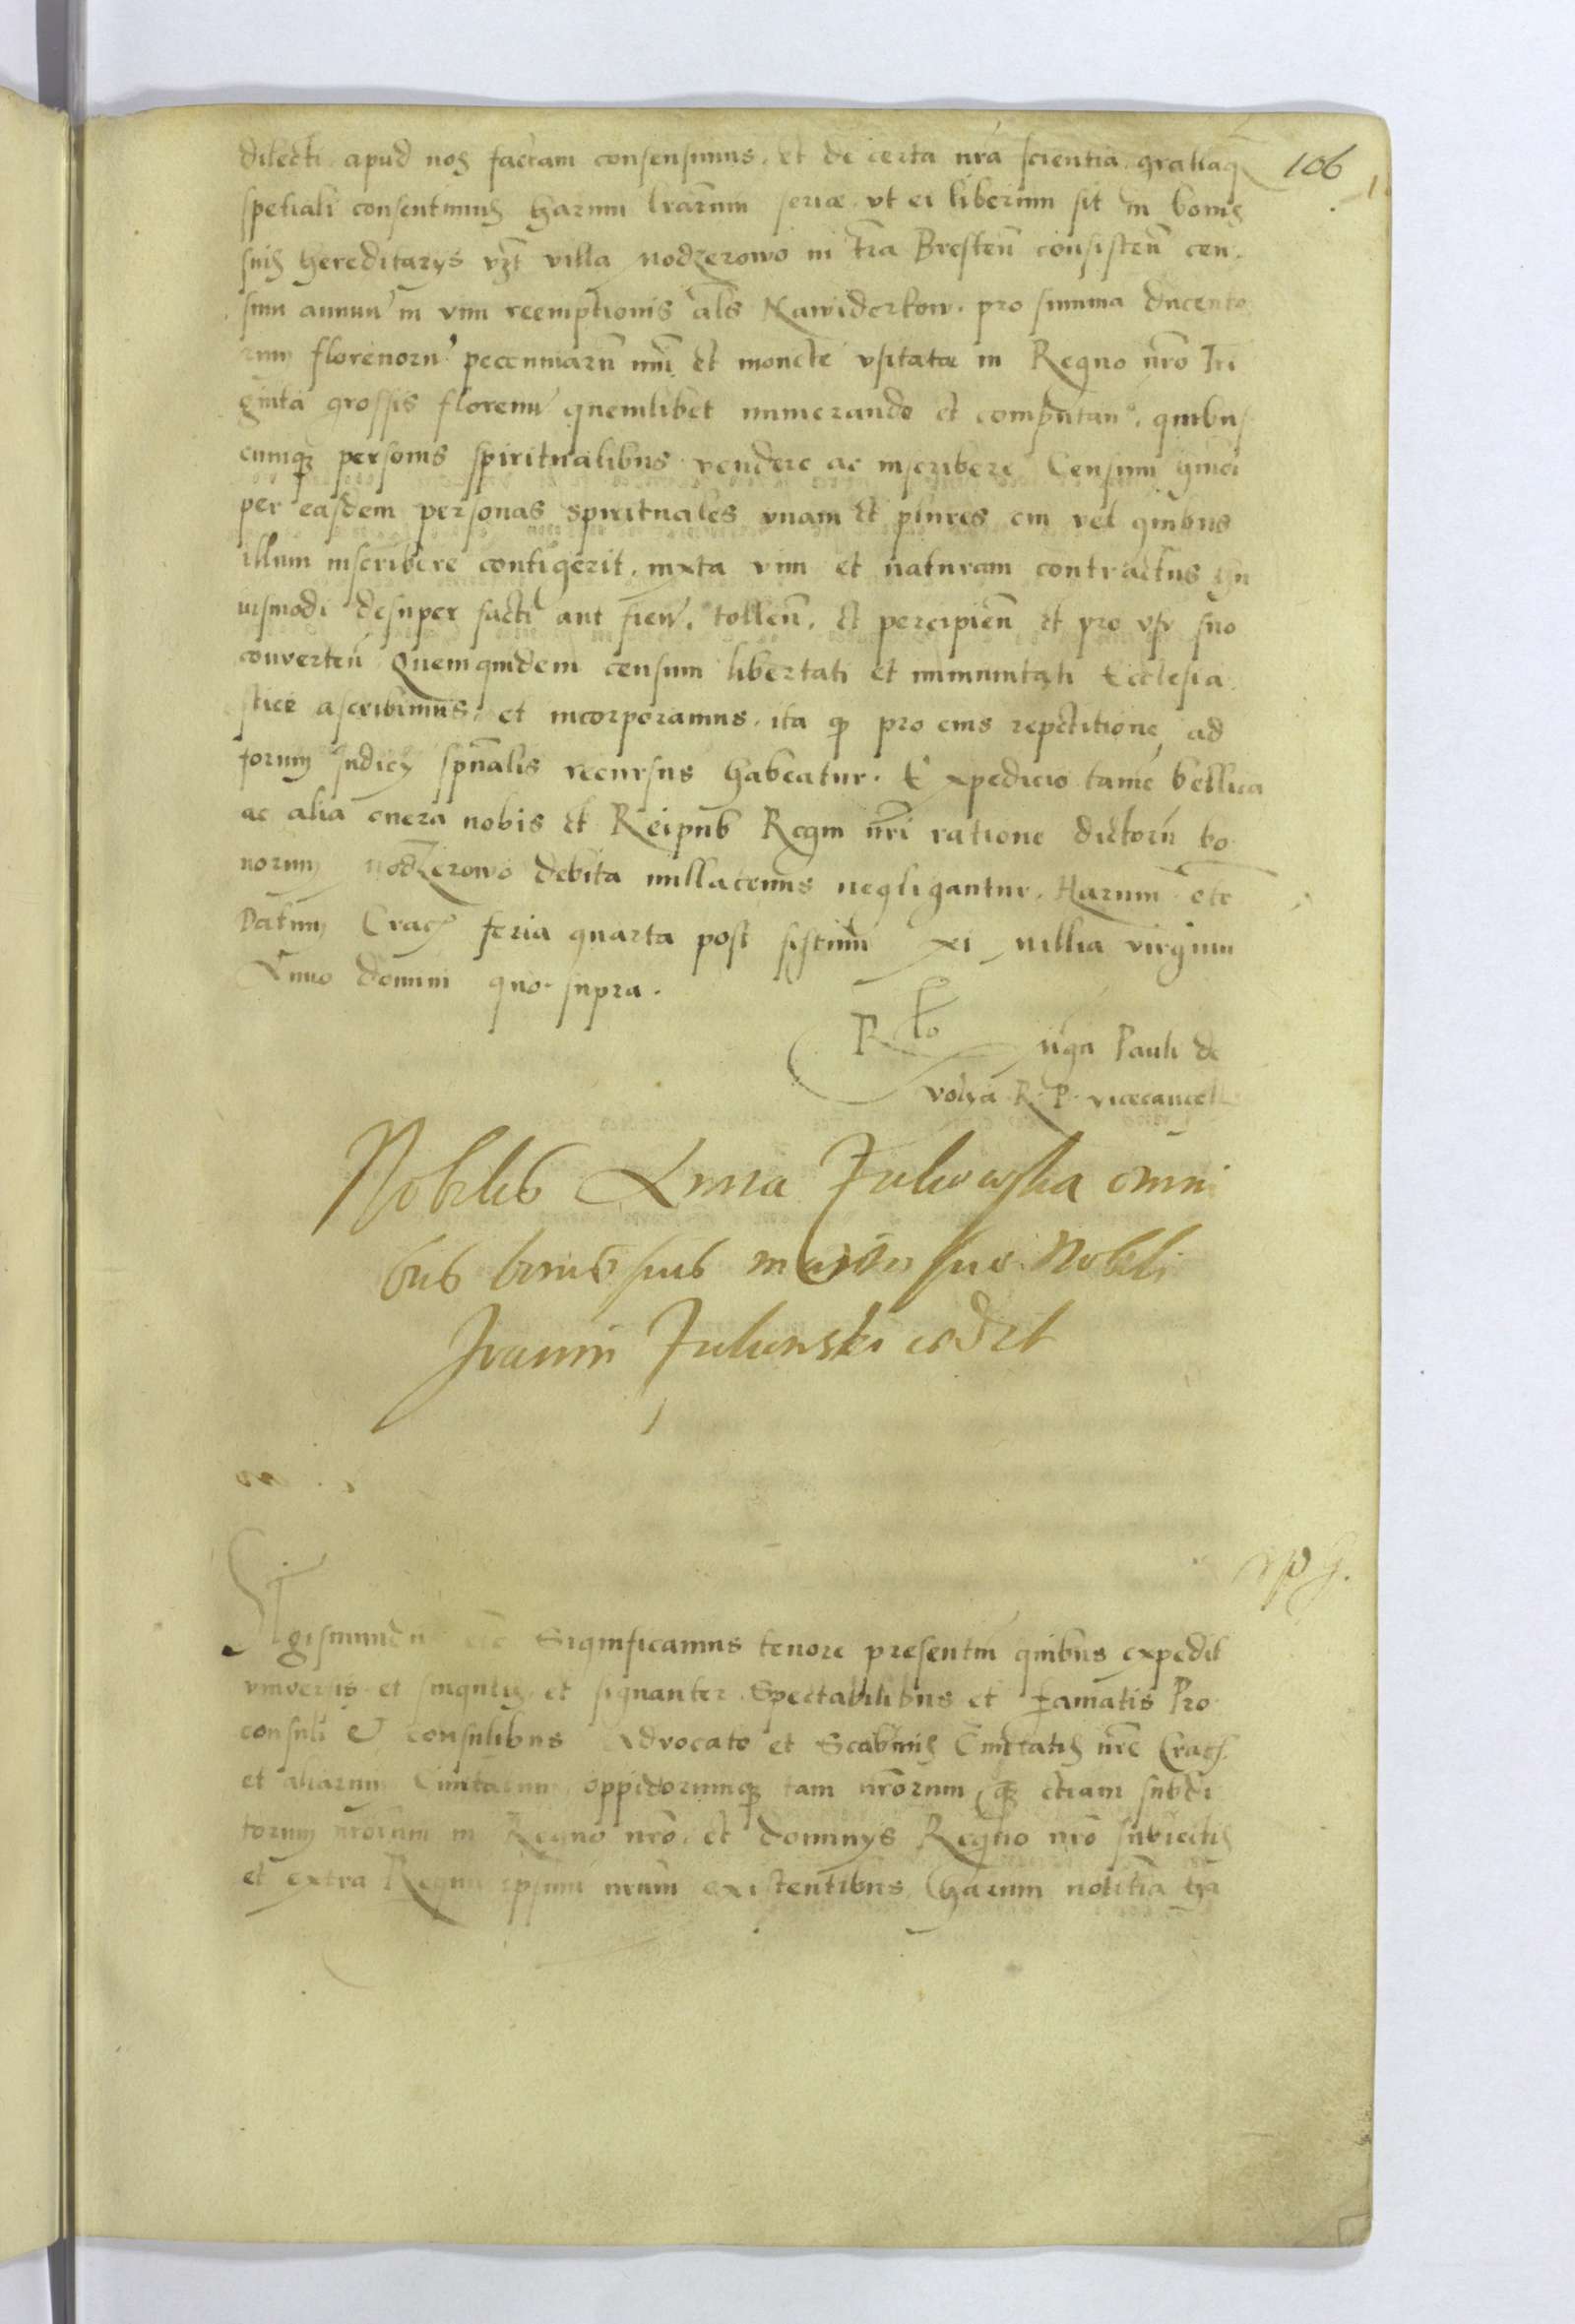 106
dilecti apud nos factam consensimus. et de certa nrã scientia gratiaq₃
spetiali consentimus harum lrarum serie. vt ei liberum sit in bonis
suis hereditarys vzt villa nodzerowo in tra Bresten̄ consisten̄ cen
sum annuū in vim reemptionis als Nawiderkow. pro summa ducento
rum florenorū pecuniarū nūi et monete vsitatae in Regno nrō Tri
ginta grossis florenū quemlibet numerando et computan̄o. quibus
cumq₃ personis spiritualibus vendere ac inscribere Censum hmōi
per easdem personas spirituales vnam et plures cui vel quibus
illum inscribere contigerit. iuxta vim et naturam contractus hu
iusmodi desuper facti aut fien̄. tollen̄. et percipien̄ et pro vsu suo
converten̄ Quemquidem censum libertati et immunitati Ecclesia
stice ascribimus. et incorporamus. ita qꝫ pro eius repetitione ad
forum Iudicy spūalis recursus habeatur. Expedicio tamē bellica
ac alia onera nobis et Reipub Regni nrī ratione dictorū bo
norum nodzerowo debita nullatenus negligantur. Harum etc
Datum Crac̄ feria quarta post festum xi millia virginum
Anno domini quo supra.
Rlo mgci Pauli de
volya R. P. vicecancell
Nobilis Anna Zulewska omni
bus bonis suis marito suo Nobili
Joanni Zulewski cedit
Sigismundus etc Significamus tenore presentiū quibus expedit
vniversis et singulis. et signanter Spectabilibus et Famatis Pro
consuli et consulibus Advocato et Scabinis Civitatis nrē Crac̄.
et aliarum Civitatum oppidorumq₃ tam nrōrum q₃ etiam subdi
torum nrōrum in Regno nrō. et dominys Regno nrō subiectis
et extra Regnū ipsum nrūm existentibus harum notitiā ha